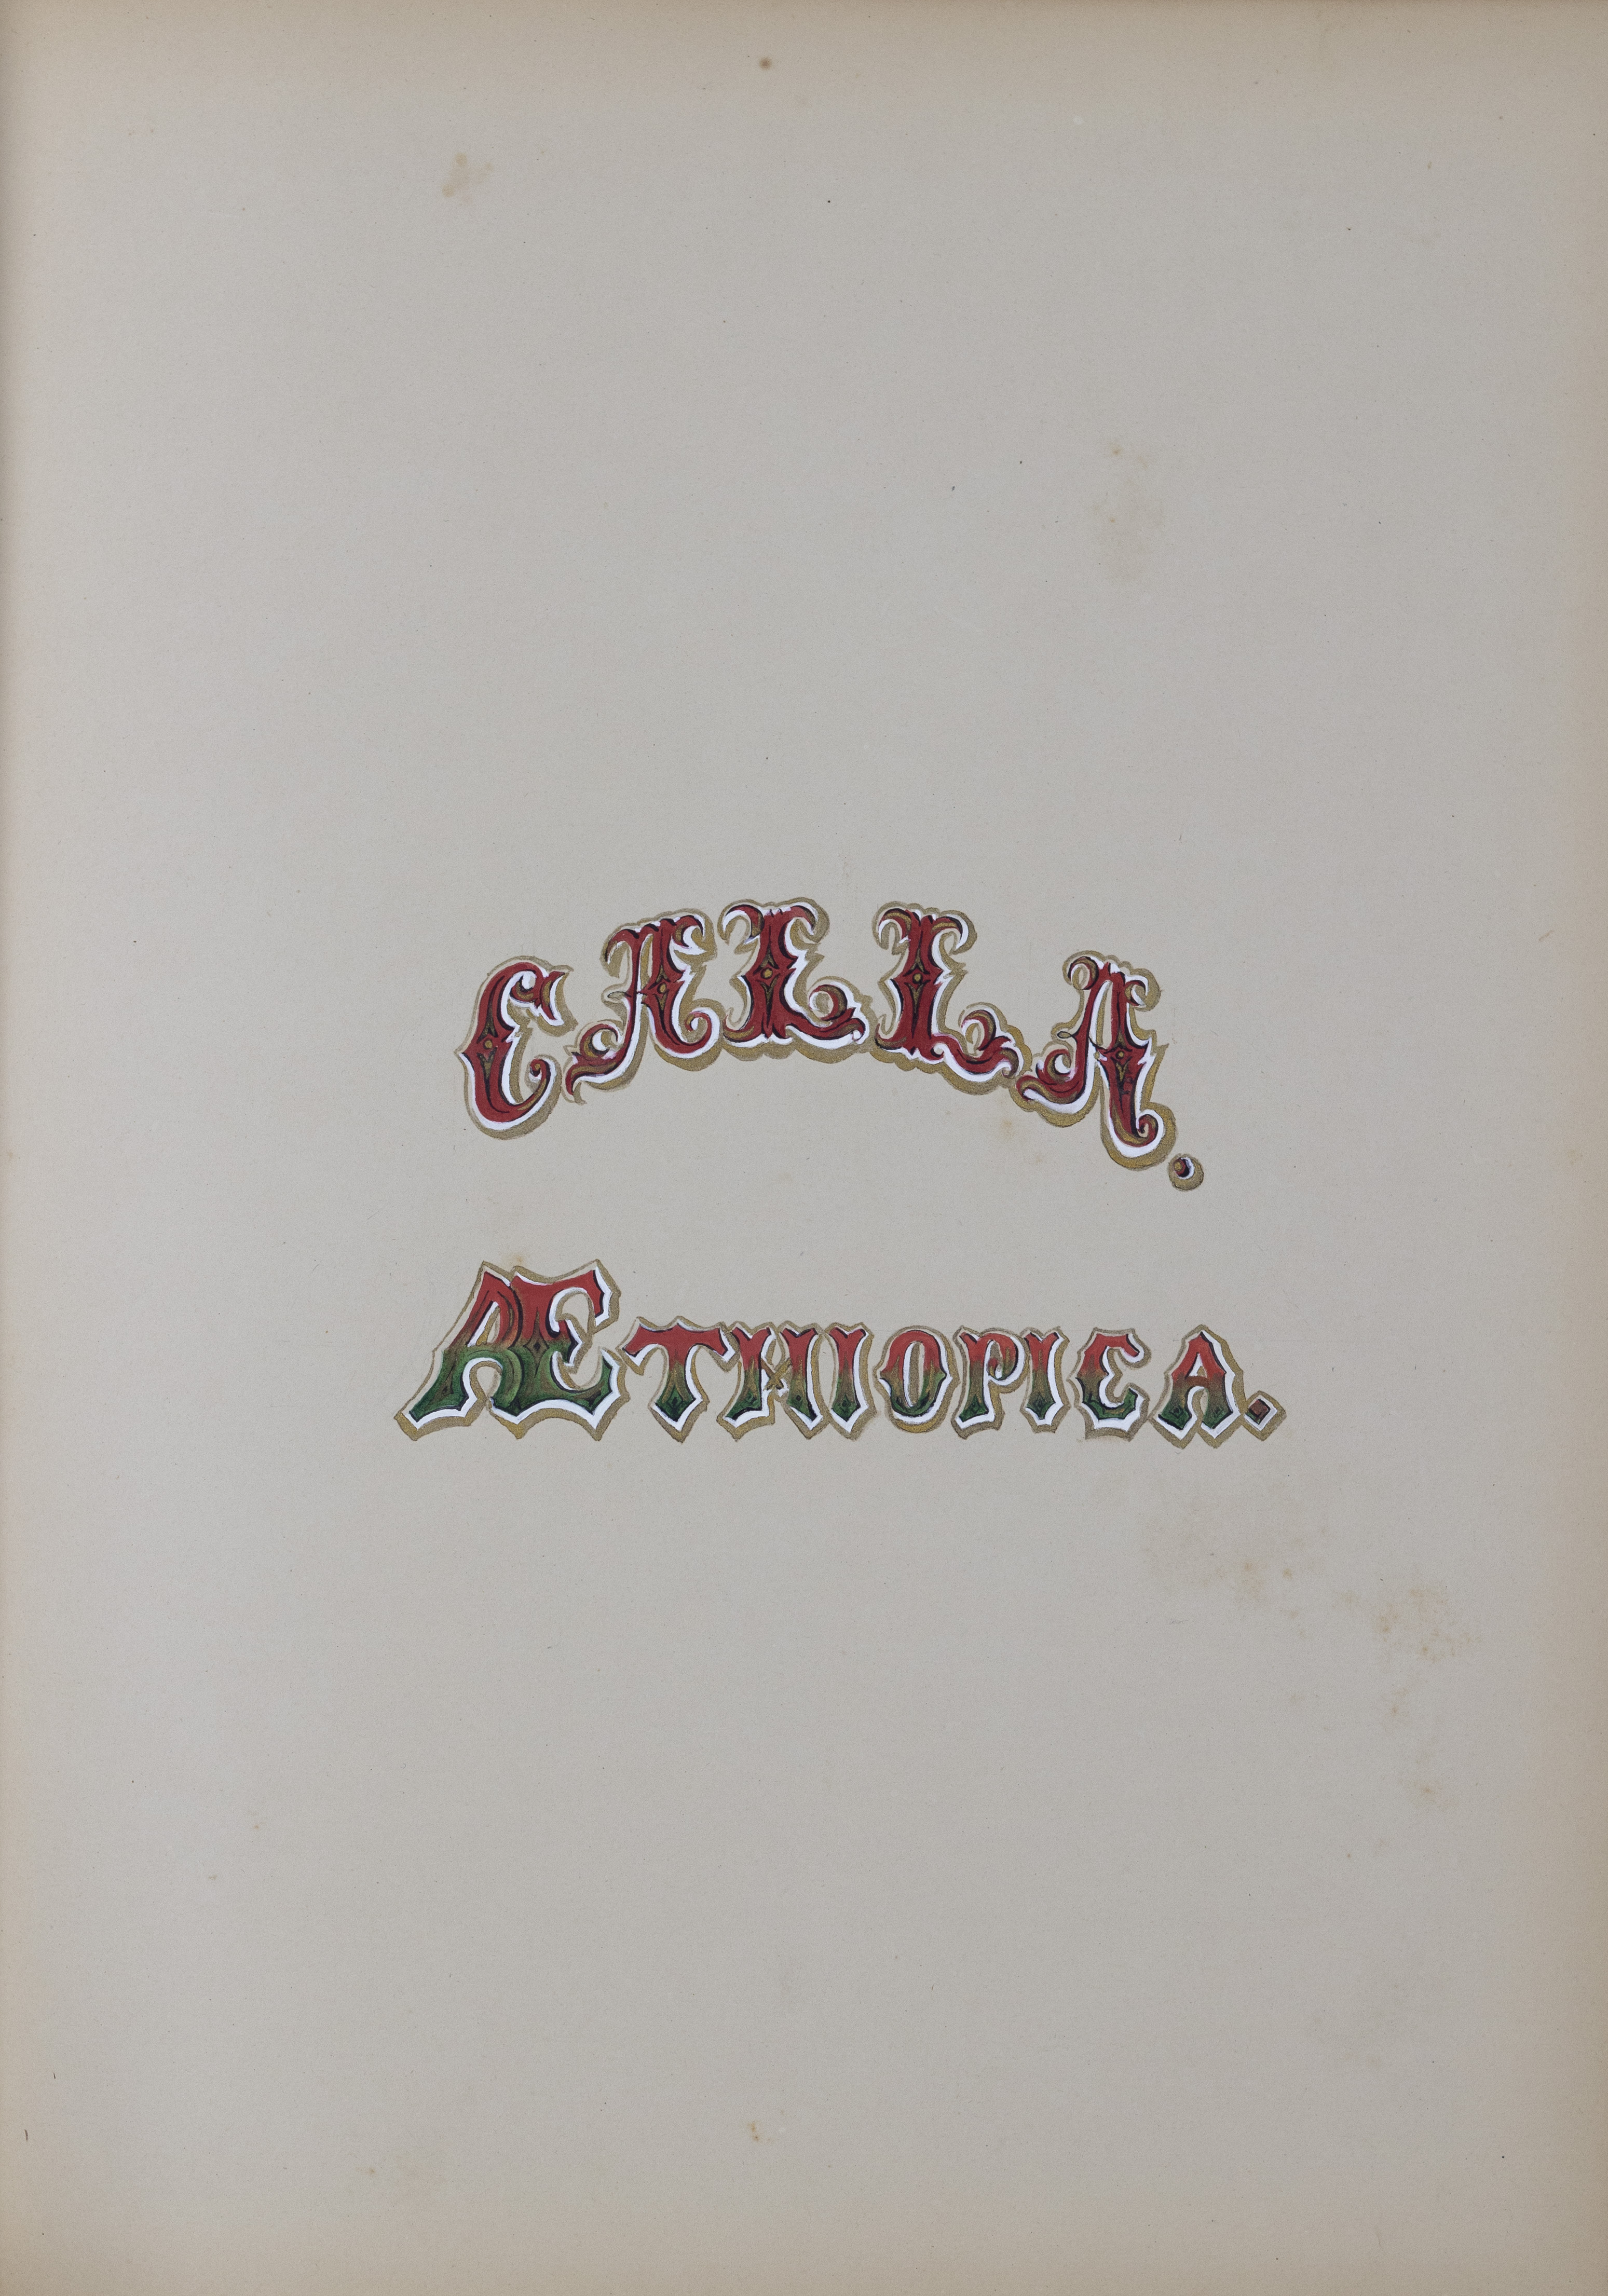 CALLA.
ÆTHIOPICA.